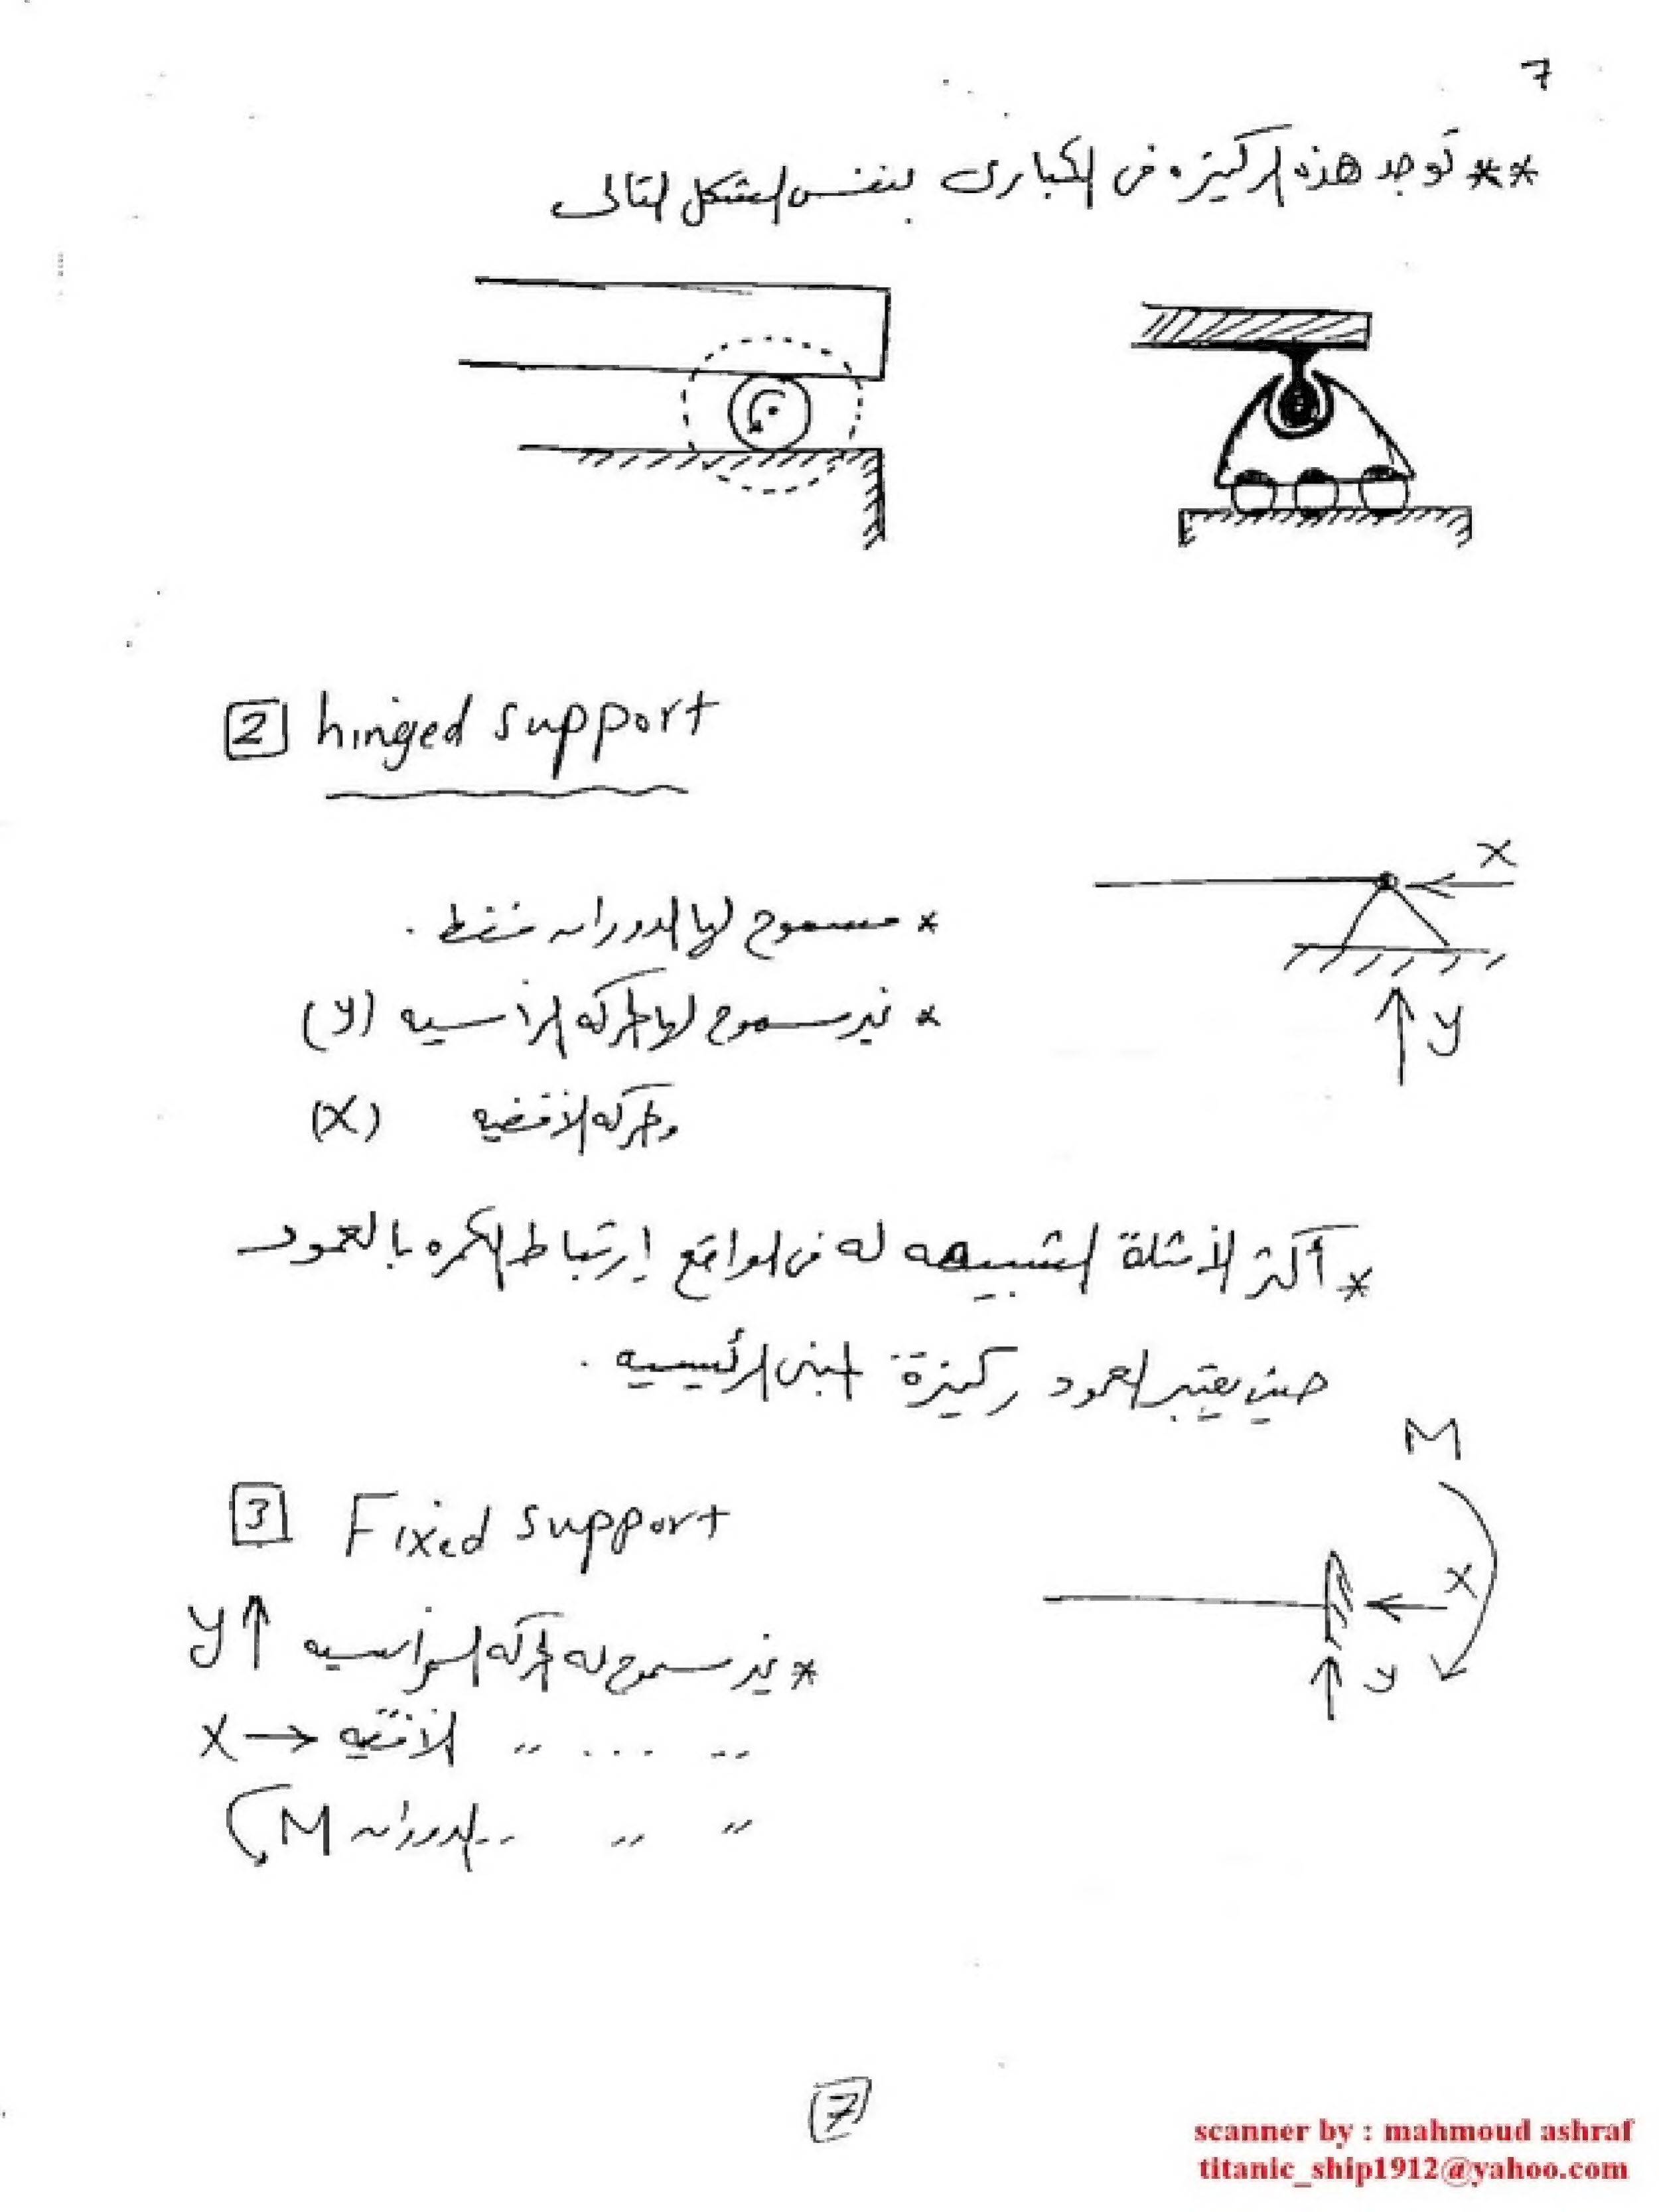 7
** توجد هذه الركيزه فى الكبارى بنفس الشكل التالى
2 hinged support
X
* مسموح لها الدوران فقط .
* غير مسموح لها الحركه الرأسيه (y)
y
والحركه الأفقيه (X)
* أكثر الأمثلة الشبيهه له فى الواقع إرتباط الكمره بالعمود
حيث يعتبر العمود ركيزة المبنى الرئيسيه .
M
3 Fixed support
X
* غير مسموح له الحركه الرأسيه y↑
y
" ... " الأفقيه X →
" " " الدوران M
7
scanner by : mahmoud ashraf
titanic_ship1912@yahoo.com